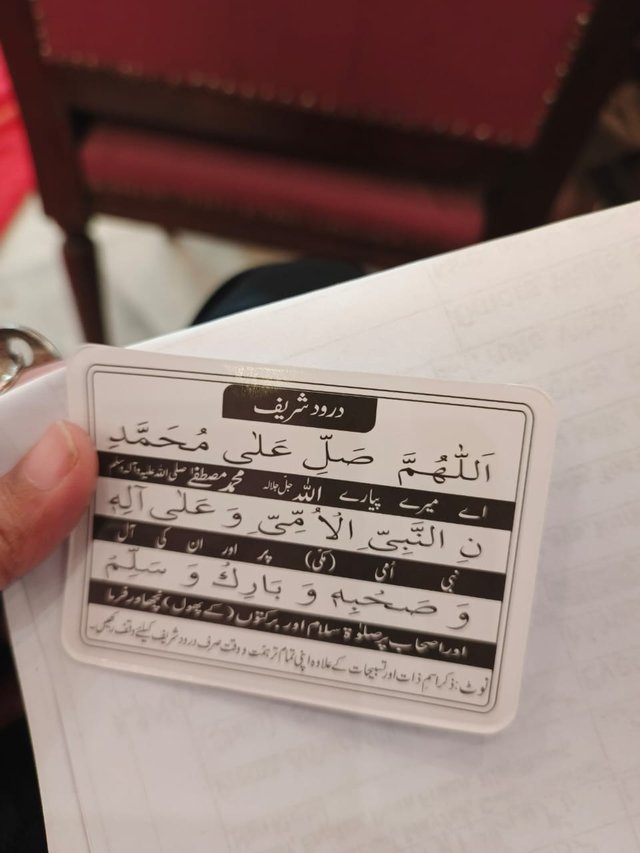 درود شریف
اَللّٰهُمَّ صَلِّ عَلٰی مُحَمَّدِ
اے میرے پیارے اللہ جل جلالہ محمد مصطفےٰ صلی اللہ علیہ وآلہ وسلم
نِ النَّبِیِّ الْاُمِّیِّ وَ عَلٰی آلِهٖ
نبی اُمی (مکی) پر اور ان کی آل
وَ صَحْبِهٖ وَ بَارِكْ وَ سَلِّمْ
اور اصحاب پر صلوٰۃ سلام اور برکتوں (کے پھول) نچھاور فرما
نوٹ: ذکر اسم ذات اور تسبیحات کے علاوہ اپنی تمام تر ہمت و وقت صرف درود شریف کیلئے وقف رکھیں۔